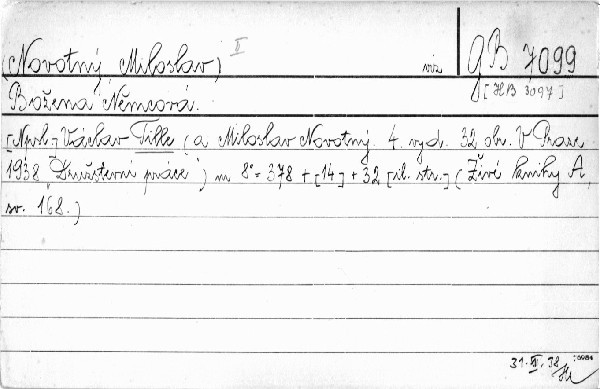 (Novotný, Miloslav) II viz gB 7099
[HB 3097]
Božena Němcová.
[Npsl.] Václav Tille (a Miloslav Novotný. 4. vyd. 32 obr. V Praze
1938 "Družstevní práce") m. 8° = 378 + [14] + 32 [il. str.] (Živé knihy A,
sv. 168.)
31. XII. 38